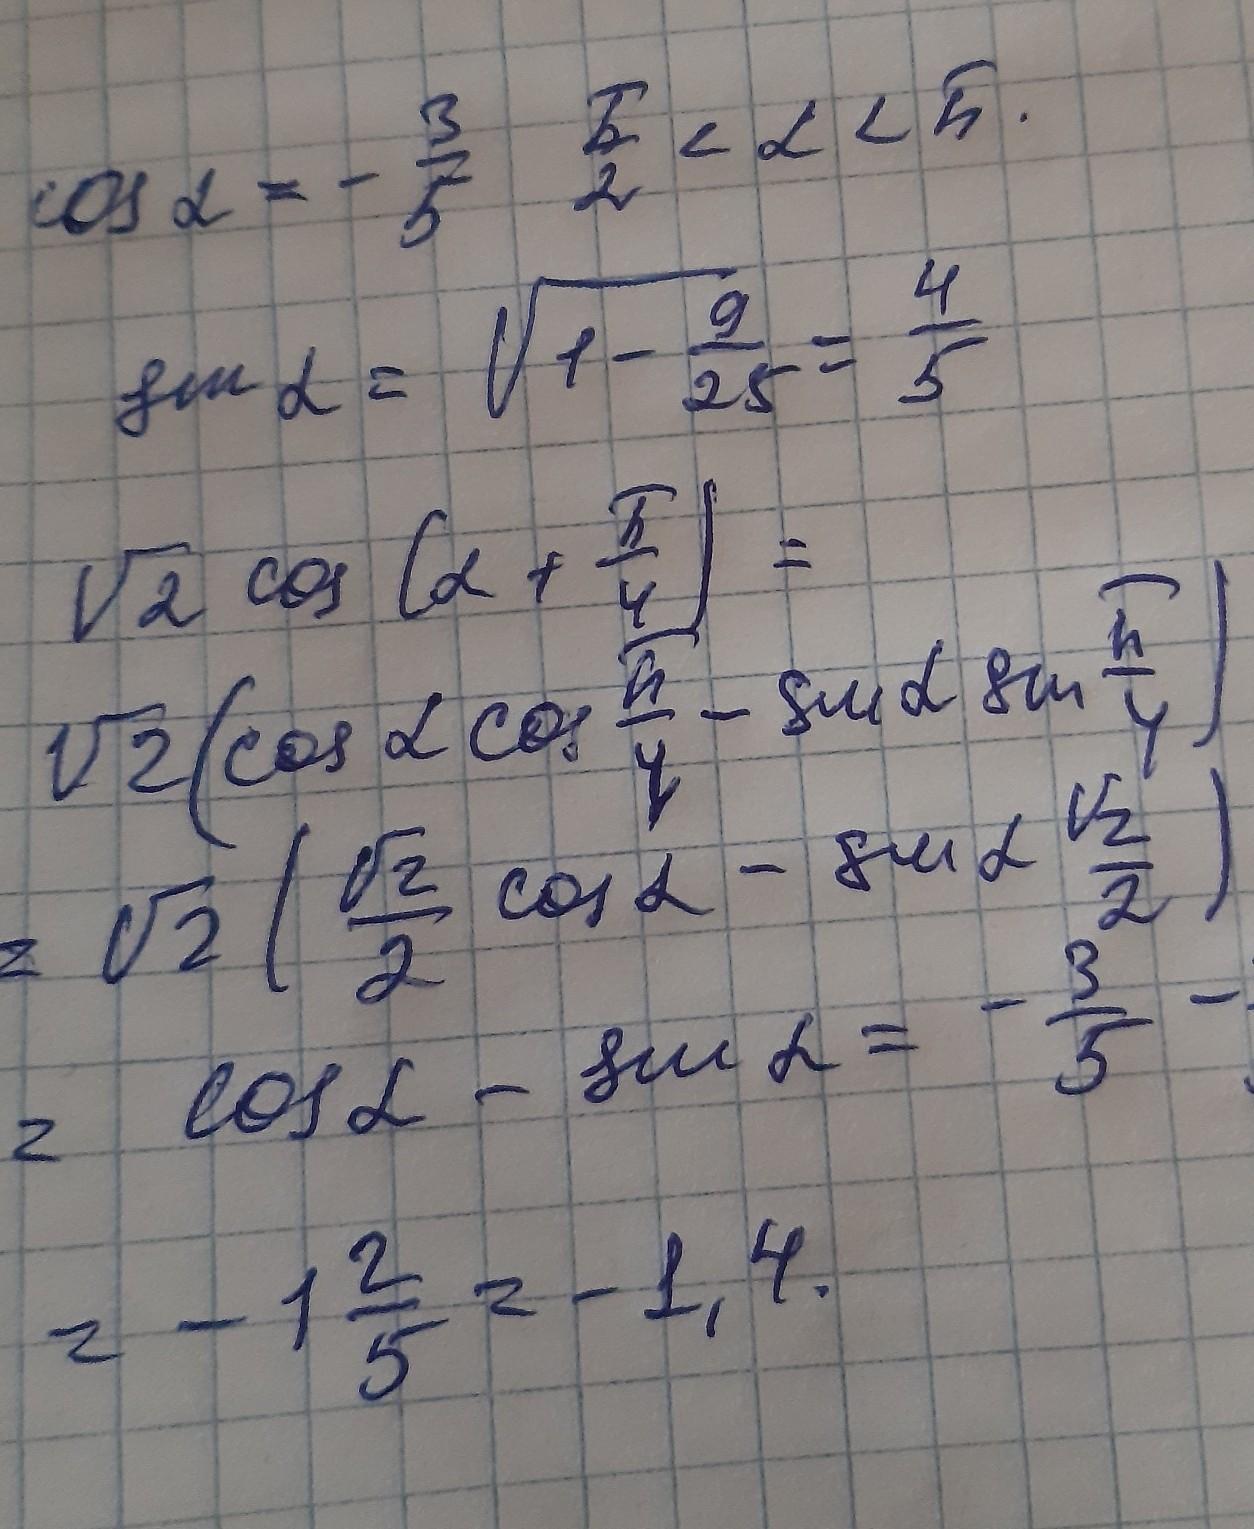 cos α = - 3/5 π/2 < α < π.
sin α = √(1 - 9/25) = 4/5
√2 cos (α + π/4) =
√2 (cos α cos π/4 - sin α sin π/4)
= √2 (√2/2 cos α - sin α √2/2)
= cos α - sin α = - 3/5 -
= - 1 2/5 = - 1,4.